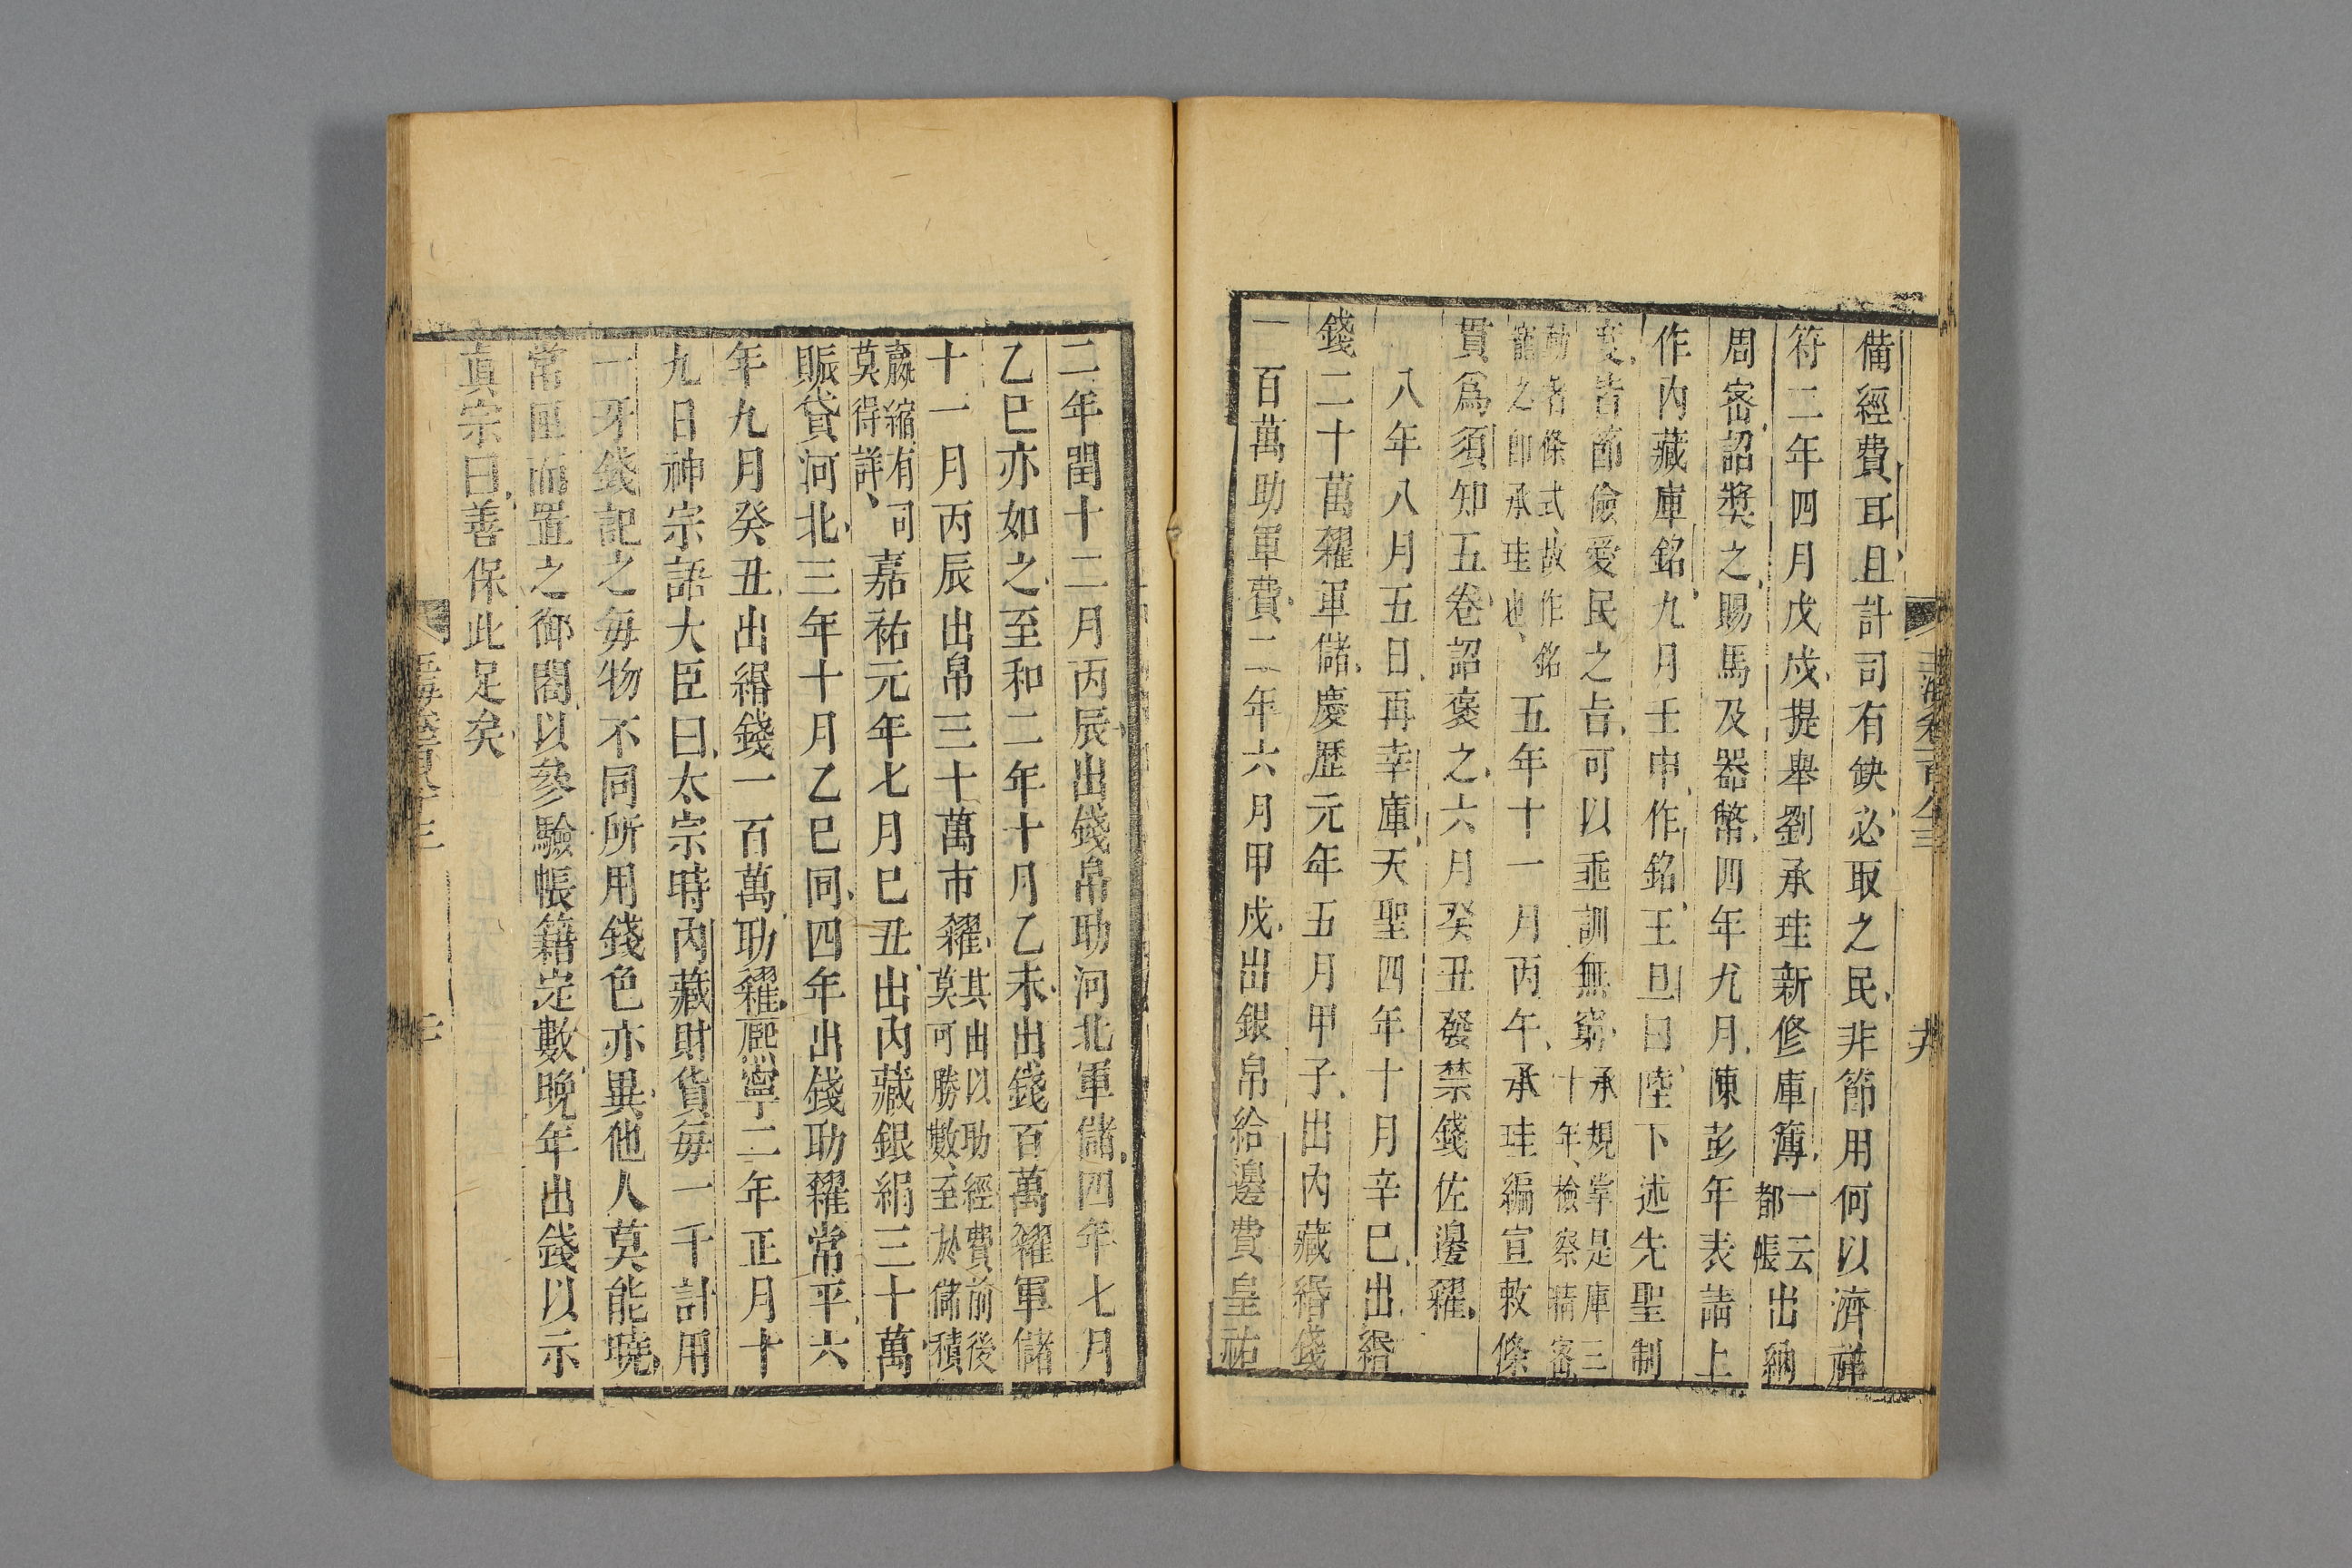 備經費耳且計司有缺必取之民非節用何以濟祥
符二年四月戊戌提舉劉承珪新修庫簿一云都帳出納
周密詔獎之賜馬及器幣四年九月陳彭年表請上
作內藏庫銘九月壬申作銘王旦曰陛下述先聖制
皆節儉愛民之旨可以垂訓無窮承規掌是庫三
十年檢察精密
動著條式故作銘
寵之卽承珪也五年十一月丙午承珪編宣敕條
貫爲須知五卷詔褒之六月癸丑發禁錢佐邊糴
八年八月五日再幸庫天聖四年十月辛巳出緡
錢二十萬糴軍儲慶歷元年五月甲子出內藏緡錢
一百萬助軍費二年六月甲戌出銀帛給邊費皇祐
二年閏十二月丙辰出錢帛助河北軍儲四年七月
乙巳亦如之至和二年十月乙未出錢百萬糴軍儲
十一月丙辰出帛三十萬市糴其出以助經費前後
莫可勝數至於儲積
贏縮有司
莫得詳嘉祐元年七月巳丑出內藏銀絹三十萬
賑貸河北三年十月乙巳同四年出錢助糴常平六
年九月癸丑出緡錢一百萬助糴熙寧二年正月十
九日神宗語大臣曰太宗時內藏財貨每一千計用
一牙錢記之每物不同所用錢色亦異他人莫能曉
常匣而置之御閣以參驗帳籍定數晚年出錢以示
真宗曰善保此足矣